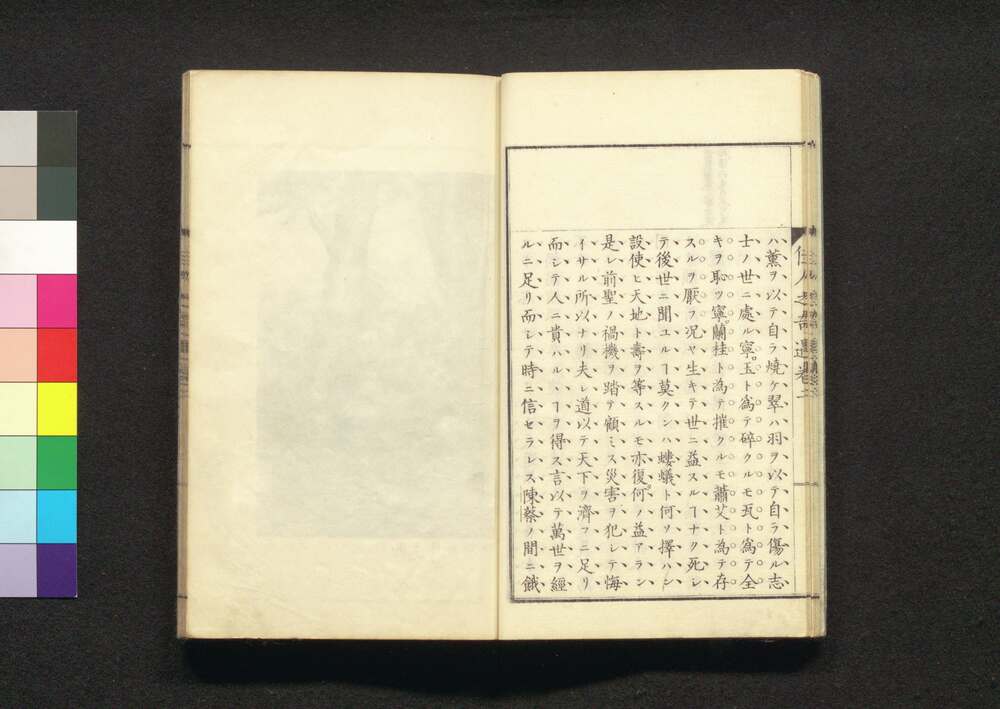 佳人之奇遇卷二
ハ薰ヲ以テ自ラ燒ケ翠ハ羽ヲ以テ自ラ傷ル志
士ノ世ニ處ル寧玉ト爲テ碎クルモ瓦ト爲テ全
キヲ恥ツ寧蘭桂ト為テ摧クルモ蕭艾ト為テ存
スルヲ厭フ况ヤ生キテ世ニ益スルヿナク死レ
テ後世ニ聞ユルヿ莫クンハ螻蟻ト何ソ擇ハン
設使ヒ天地ト壽ヲ等スルモ亦復何ノ益アラン
是レ前聖ノ禍機ヲ踏テ顧ミス災害ヲ犯レテ悔
イサル所以ナリ夫レ道以テ天下ヲ濟フニ足リ
而シテ人ニ貴ハルヽヿヲ得ス言以テ萬世ヲ經
ルニ足リ而シテ時ニ信セラレス陳蔡ノ間ニ餓